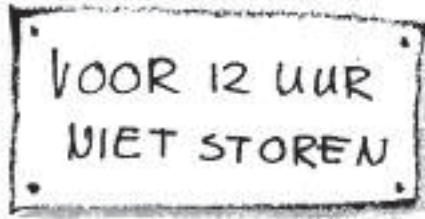 VOOR 12 UUR
NIET STOREN